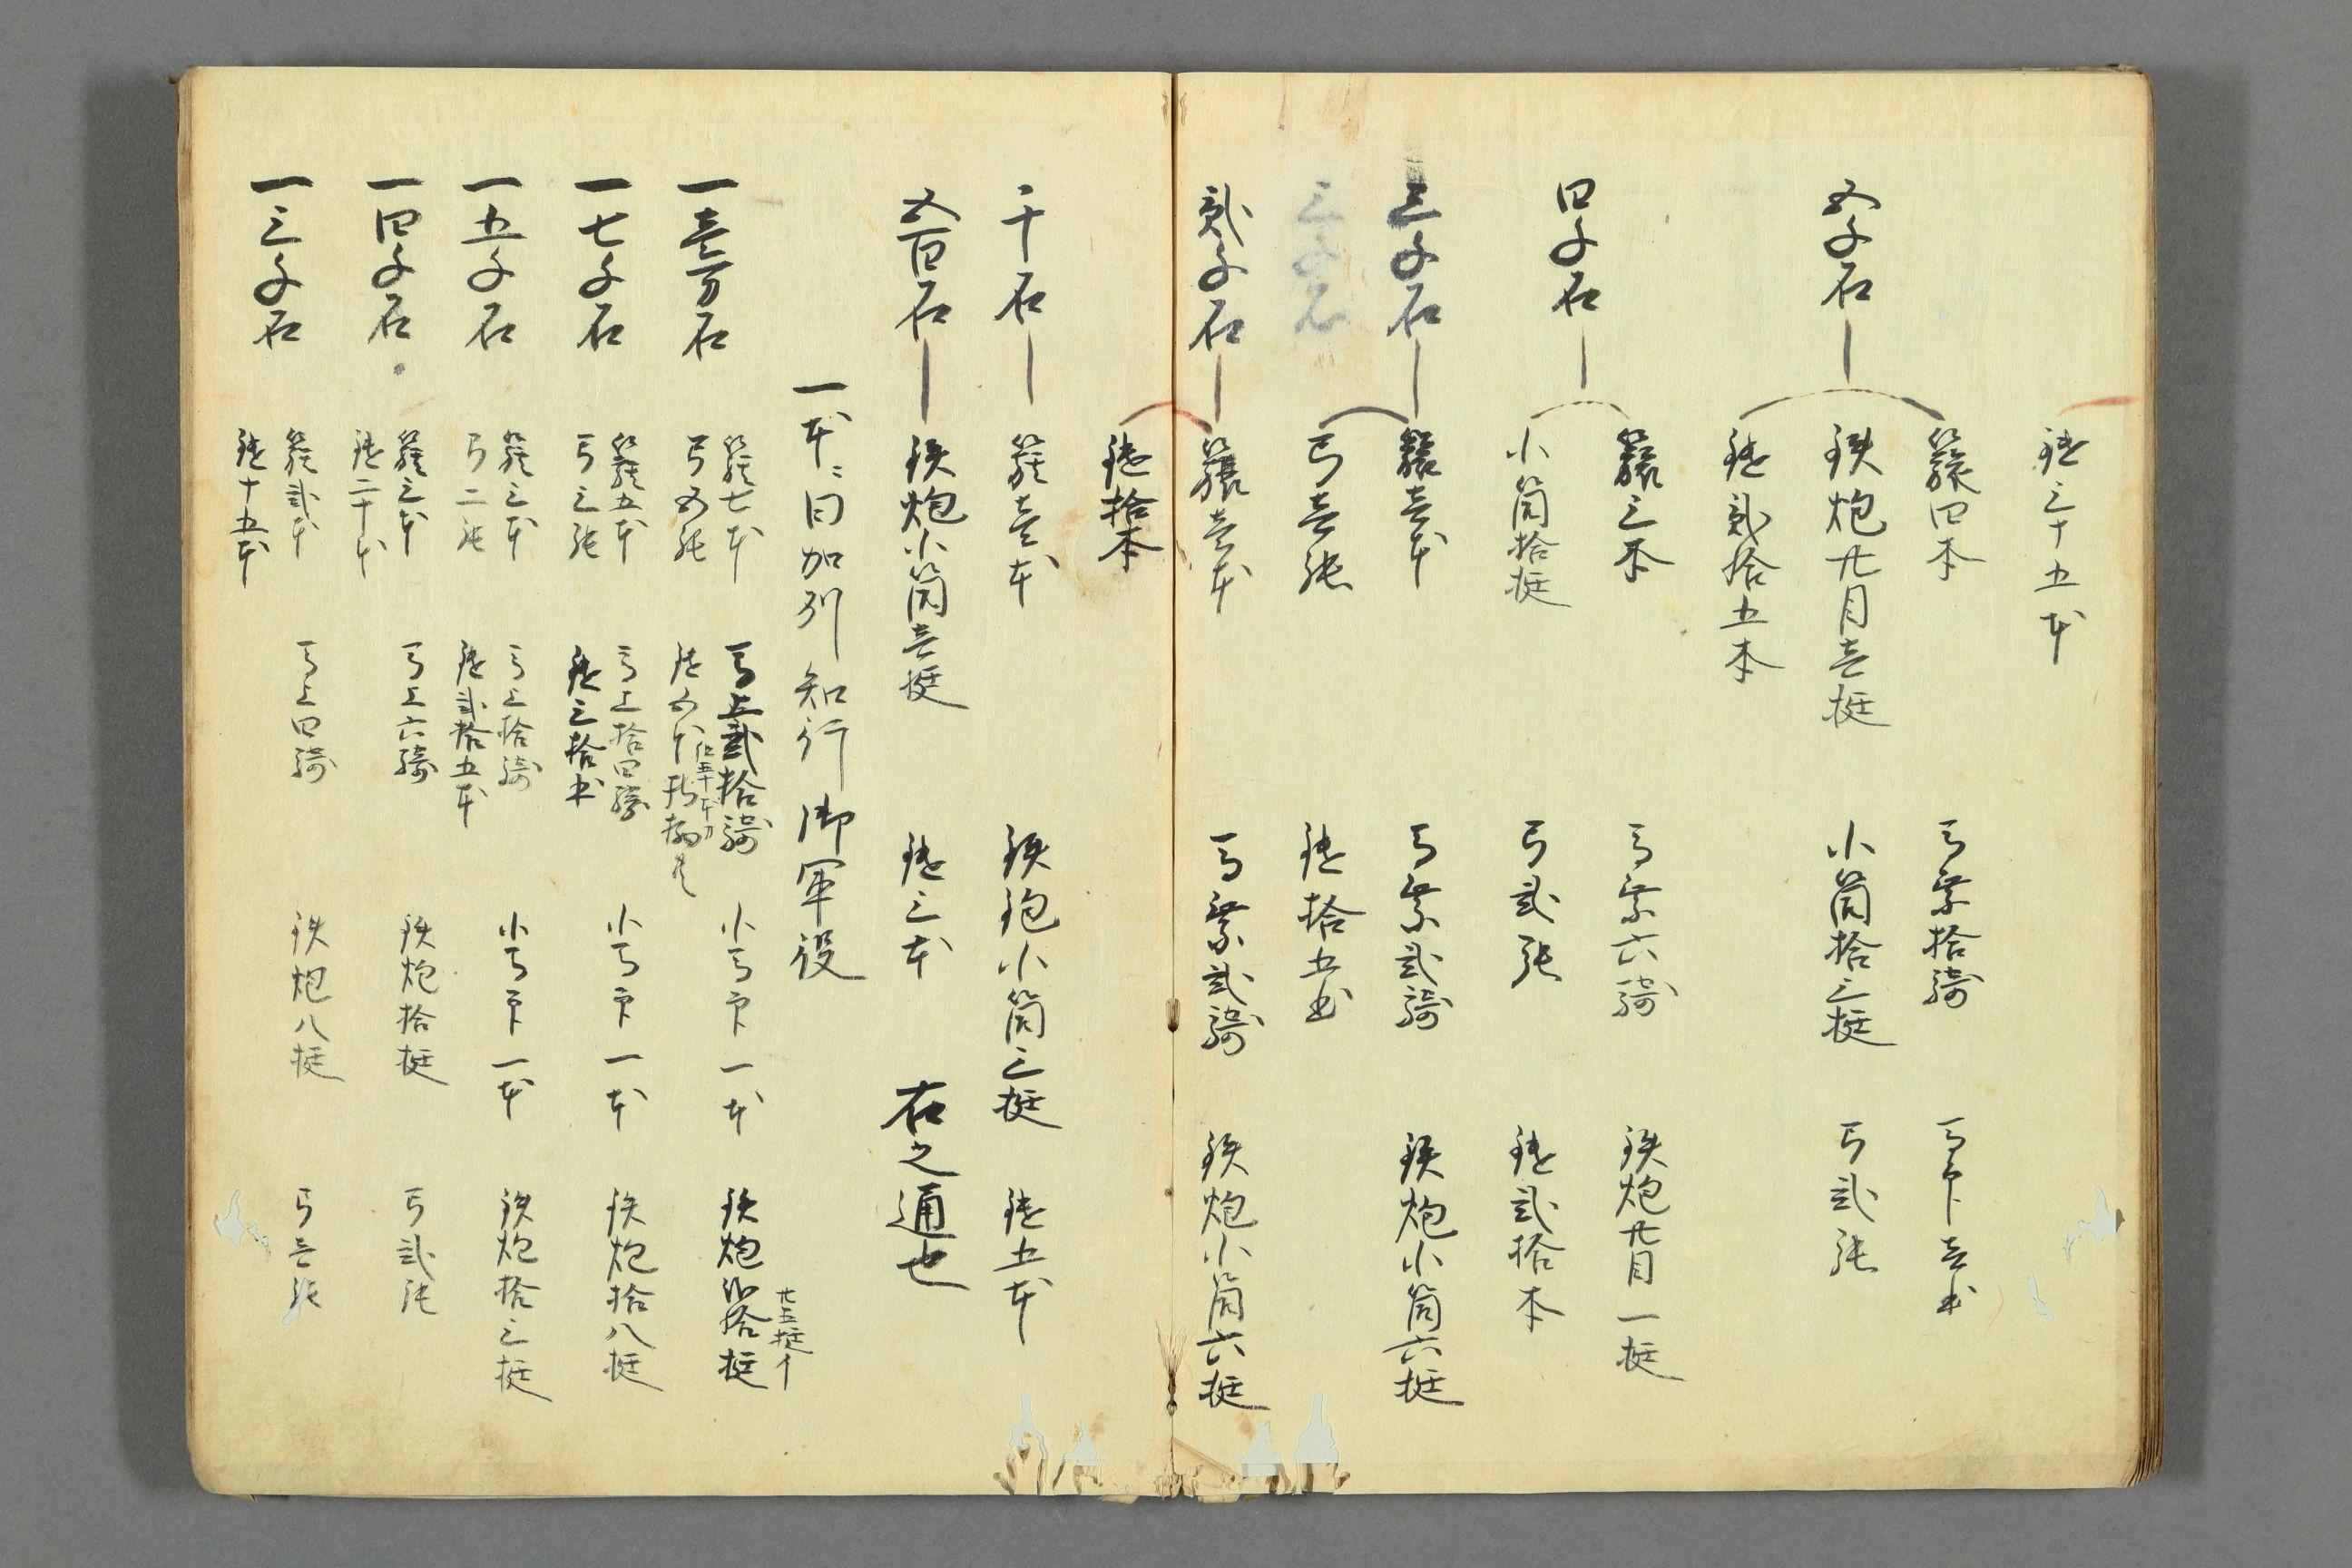 鑓三十五本
籏四本　馬乗拾騎　馬印壱本
五千石　鉄炮廿目壱挺　小筒拾三挺　弓弐張
鑓貮拾五本
籏三本　馬乗六騎　鉄炮廿目一挺
四千石
小筒拾挺　弓弐張　鑓弐拾本
三千石　籏壱本　馬乗弐騎　鉄炮小筒六挺
弓壱張　鑓拾五本
三千石
貮千石　籏壱本　馬乗弐騎　鉄炮小筒六挺
鑓拾本
千石　籏壱本　鉄炮小筒三挺　鑓五本
五百石　鉄炮小筒壱挺　鑓三本　右之通也
一本ニ曰加列知行御軍役
一壱万石　籏七本　馬上貮拾騎　小馬印一本　鉄炮弐拾挺
廿五挺イ
弓五張　鑓五十
一七千石　籏五本　馬上拾四騎　小馬印一本　鉄炮拾八挺
弓三張　鑓三拾本
一五千石　籏三本　馬上拾騎　小馬印一本　鉄炮拾三挺
弓二張　鑓弐拾五本
一四千石　籏三本　馬上六騎　鉄炮拾挺　弓弐張
鑓二十本
一三千石　籏弐本　馬上四騎　鉄炮八挺　弓壱張
鑓十五本